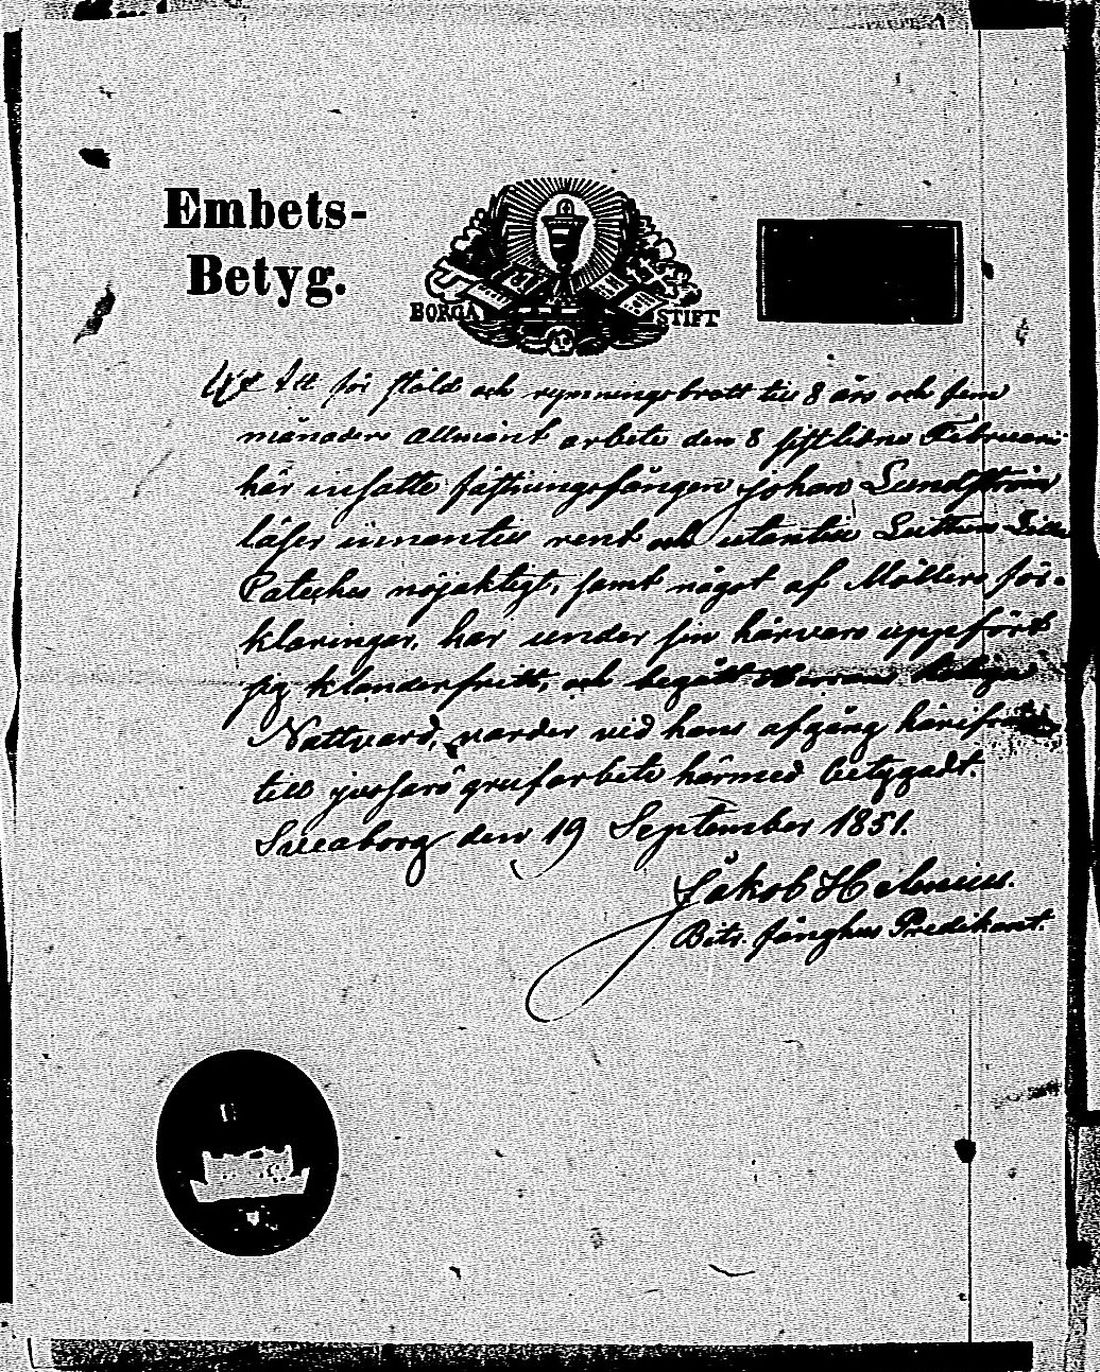 Embets-
Betyg.
BORGÅ STIFT
Att för stöld och rymningsbrott till 8 års och fem
månaders allmänt arbete den 8 sistlidne Februari
här insatte fästningsfången Johan Lundström
läser innantill rent och utantill Luthers Lilla
Cateches nöjaktigt, samt något af Möllers för-
klaringar, har under sin härvaro uppfört
sig klanderfritt, och begått Herrans heliga
Nattvard, varder vid hans afgång härifrån
till jussarö grufarbete härmed betygadt.
Sveaborg den 19 September 1851.
Jakob Helenius.
Bitr. fånghus Predikant.